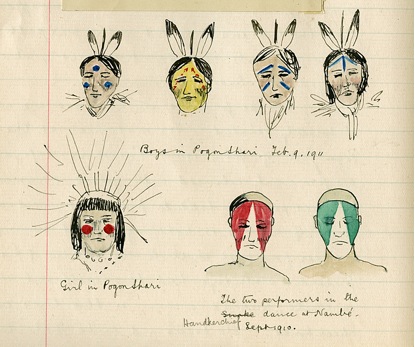 Boys in Pogonshari Feb. 9, 1911
Girl in Pogonshari
The two performers in the
Snake dance at Nambé.
Handkerchief
Sept. 1910.